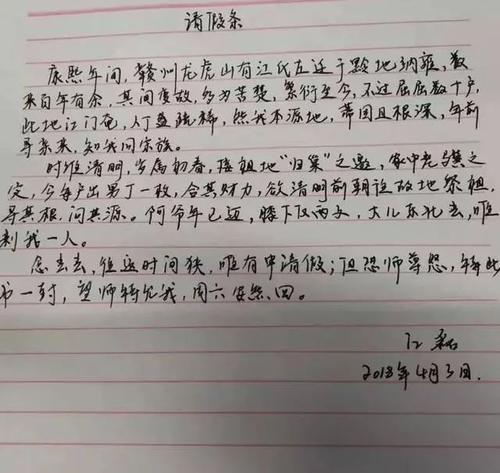 请假条
康熙年间，赣州龙虎山有江氏左迁于黔地纳雍，数
来百年有余，其间变故，多为苦楚，繁衍至今，不过屈屈数十户，
此地江门奄，人丁益疏稀，然我本源地，蒂固且根深，年前
寻亲来，知我同宗族。
时维清明，当属初春，接祖地“归案”之邀，家中老与莫之
定，今每户出男丁一枚，合其财力，欲清明前朝诣故地祭祖，
寻其根，问其源。何爷年已迈，膝下仅两子，大儿东北去，唯
剩我一人。
念去去，往返时间狭，唯有申请假；但恐师尊怒，特奉此
书一封，望师特允我，周六安然回。
江磊
2018年4月3日.